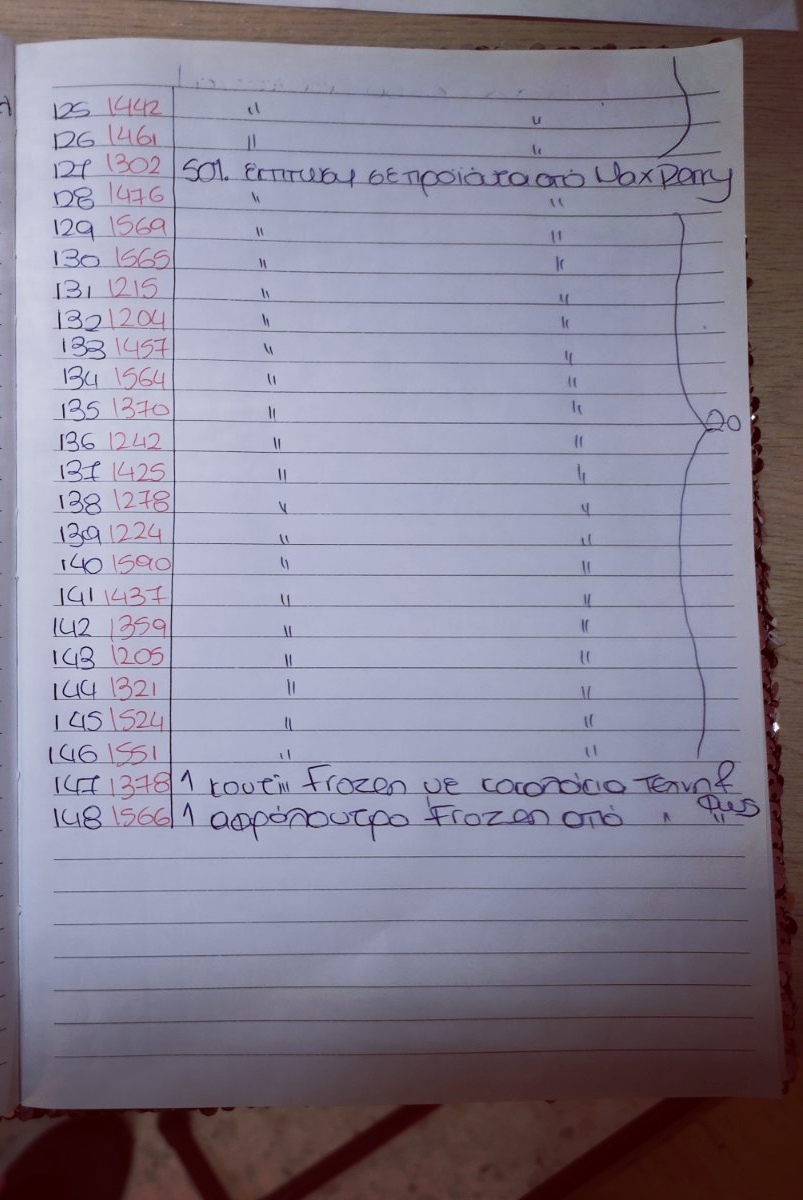 125 1442 " "
126 1461 " "
127 1302 50% έκπτωση σε προϊόντα από Max Perry
128 1476 " "
129 1569 " "
130 1565 " "
131 1215 " "
132 1204 " "
133 1457 " "
134 1564 " "
135 1370 " " 20
136 1242 " "
137 1425 " "
138 1278 " "
139 1224 " "
140 1590 " "
141 1437 " "
142 1359 " "
143 1205 " "
144 1321 " "
145 1524 " "
146 1551 " "
147 1378 1 κουτί Frozen με σοκολάτα Τέχνη &
148 1566 1 αφρόλουτρο Frozen από " Φως "